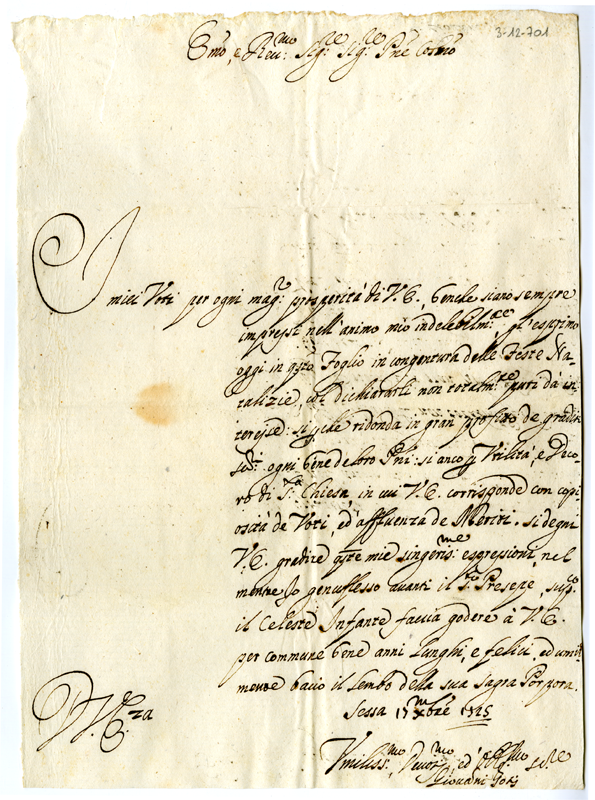 3-12-701
Emo, e Reu:mo Sig:re Sig:re Pne Colmo
I miei Voti per ogni mag:r prosperità di V.E., benche siano sempre
impressi nell'animo mio indelebilm:te gl'esprimo
oggi in qsto Foglio in congentura delle Feste Na-
talizie, col dichiararli non totalm:te puri da in-
teresse: siche ridonda in gran profitto de gradit
Sud: ogni bene de loro Pni: si anco p Vtilità, e Deco-
ro di S:ta Chiesa, in cui V.E. corrisponde con copi
osità de Voti, ed affluenza de Meriti. Si degni
V.E. gradire qste mie singeris:me espressioni, nel
mentre Io genuflesso auanti il S:to Presepe, sup:co
il Celeste Infante faccia godere à V.E.
per commune bene anni lunghi, e felici, ed umil-
mente bacio il lembo della sua Sagra Porpora.
Sessa 17 Xmbre 1725
V.E.za
Vmiliss:mo Deuot:mo ed Obl:mo Se:re
Giouani